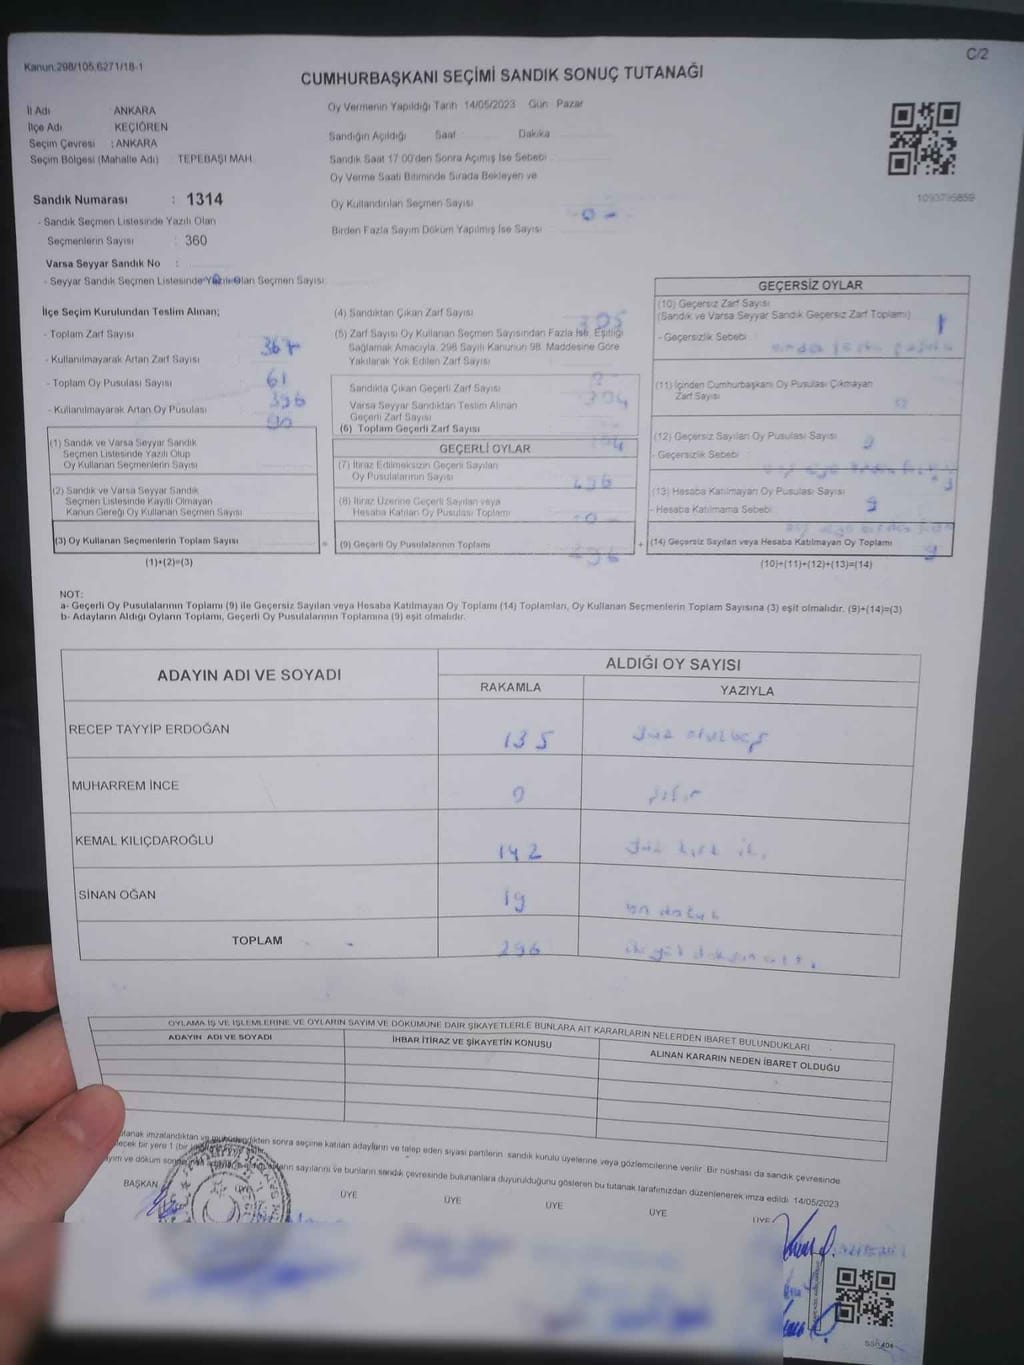 Kanun:298/105,6271/18-1
C/2
CUMHURBAŞKANI SEÇİMİ SANDIK SONUÇ TUTANAĞI
İl Adı : ANKARA
İlçe Adı : KEÇİÖREN
Seçim Çevresi : ANKARA
Seçim Bölgesi (Mahalle Adı) : TEPEBAŞI MAH.
Sandık Numarası : 1314
- Sandık Seçmen Listesinde Yazılı Olan
Seçmenlerin Sayısı : 360
Varsa Seyyar Sandık No :
- Seyyar Sandık Seçmen Listesinde Yazılı Olan Seçmen Sayısı:
Oy Vermenin Yapıldığı Tarih 14/05/2023 Gün Pazar
Sandığın Açıldığı Saat Dakika
Sandık Saat 17.00'den Sonra Açımış İse Sebebi
Oy Verme Saati Bitiminde Sırada Bekleyen ve
Oy Kullandırılan Seçmen Sayısı
- 0 -
Birden Fazla Sayım Döküm Yapılmış İse Sayısı
1093795859
İlçe Seçim Kurulundan Teslim Alınan;
- Toplam Zarf Sayısı
- Kullanılmayarak Artan Zarf Sayısı
- Toplam Oy Pusulası Sayısı 61
- Kullanılmayarak Artan Oy Pusulası 90
(1) Sandık ve Varsa Seyyar Sandık
Seçmen Listesinde Yazılı Olup
Oy Kullanan Seçmenlerin Sayısı
(2) Sandık ve Varsa Seyyar Sandık
Seçmen Listesinde Kayıtlı Olmayan
Kanun Gereği Oy Kullanan Seçmen Sayısı
(3) Oy Kullanan Seçmenlerin Toplam Sayısı
(1)+(2)=(3)
=
(4) Sandıktan Çıkan Zarf Sayısı 305
(5) Zarf Sayısı Oy Kullanan Seçmen Sayısından Fazla İse, Eşitliği
Sağlamak Amacıyla, 298 Sayılı Kanunun 98. Maddesine Göre
Yakılarak Yok Edilen Zarf Sayısı
Sandıkta Çıkan Geçerli Zarf Sayısı 304
Varsa Seyyar Sandıktan Teslim Alınan
Geçerli Zarf Sayısı
(6) Toplam Geçerli Zarf Sayısı
GEÇERLİ OYLAR
(7) İtiraz Edilmeksizin Geçerli Sayılan
Oy Pusulalarının Sayısı 296
(8) İtiraz Üzerine Geçerli Sayılan veya
Hesaba Katılan Oy Pusulası Toplamı - 0 -
(9) Geçerli Oy Pusulalarının Toplamı 296
+
GEÇERSİZ OYLAR
(10) Geçersiz Zarf Sayısı
(Sandık ve Varsa Seyyar Sandık Geçersiz Zarf Toplamı) 1
- Geçersizlik Sebebi
(11) İçinden Cumhurbaşkanı Oy Pusulası Çıkmayan
Zarf Sayısı
(12) Geçersiz Sayılan Oy Pusulası Sayısı
- Geçersizlik Sebebi
(13) Hesaba Katılmayan Oy Pusulası Sayısı
- Hesaba Katılmama Sebebi
(14) Geçersiz Sayılan veya Hesaba Katılmayan Oy Toplamı 9
(10)+(11)+(12)+(13)=(14)
NOT:
a- Geçerli Oy Pusulalarının Toplamı (9) ile Geçersiz Sayılan veya Hesaba Katılmayan Oy Toplamı (14) Toplamları, Oy Kullanan Seçmenlerin Toplam Sayısına (3) eşit olmalıdır. (9)+(14)=(3)
b- Adayların Aldığı Oyların Toplamı, Geçerli Oy Pusulalarının Toplamına (9) eşit olmalıdır.
ADAYIN ADI VE SOYADI
ALDIĞI OY SAYISI
RAKAMLA YAZIYLA
RECEP TAYYİP ERDOĞAN 135 Yüz otuz beş
MUHARREM İNCE 0 sıfır
KEMAL KILIÇDAROĞLU 142 Yüz kırk iki
SİNAN OĞAN 19 on dokuz
TOPLAM 296 iki yüz doksan altı
OYLAMA İŞ VE İŞLEMLERİNE VE OYLARIN SAYIM VE DÖKÜMÜNE DAİR ŞİKAYETLERLE BUNLARA AİT KARARLARIN NELERDEN İBARET BULUNDUKLARI
ADAYIN ADI VE SOYADI
İHBAR İTİRAZ VE ŞİKAYETİN KONUSU
ALINAN KARARIN NEDEN İBARET OLDUĞU
tutanak imzalandıktan ve mühürlendikten sonra seçime katılan adayların ve talep eden siyasi partilerin sandık kurulu üyelerine veya gözlemcilerine verilir. Bir nüshası da sandık çevresinde
bir yere 1 (bir)
sayım ve döküm sayılarını ve bunların sandık çevresinde bulunanlara duyurulduğunu gösteren bu tutanak tarafımızdan düzenlenerek imza edildi. 14/05/2023
BAŞKAN ÜYE ÜYE ÜYE ÜYE ÜYE